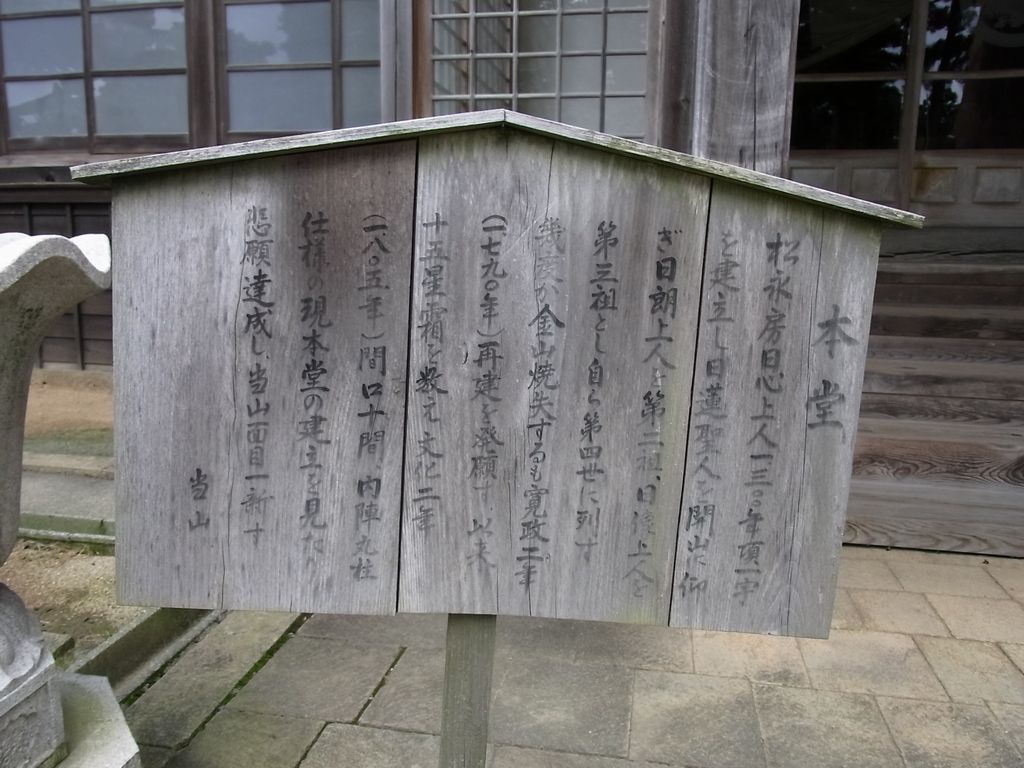 本堂
松永房日心上人一三〇年項一宇
を建立し日蓮聖人を開山に仰
ぎ日朗上人を第二祖、日法上人を
第三祖とし自ら第四世に列す
幾度か全山焼失するも寛政二年
(一七九〇年)再建を発願す、以来
十五星霜を数え文化二年
(一八〇五年)間口十間、内陣丸柱
仕様の現本堂の建立を見たり
悲願達成し、当山面目一新す
当山